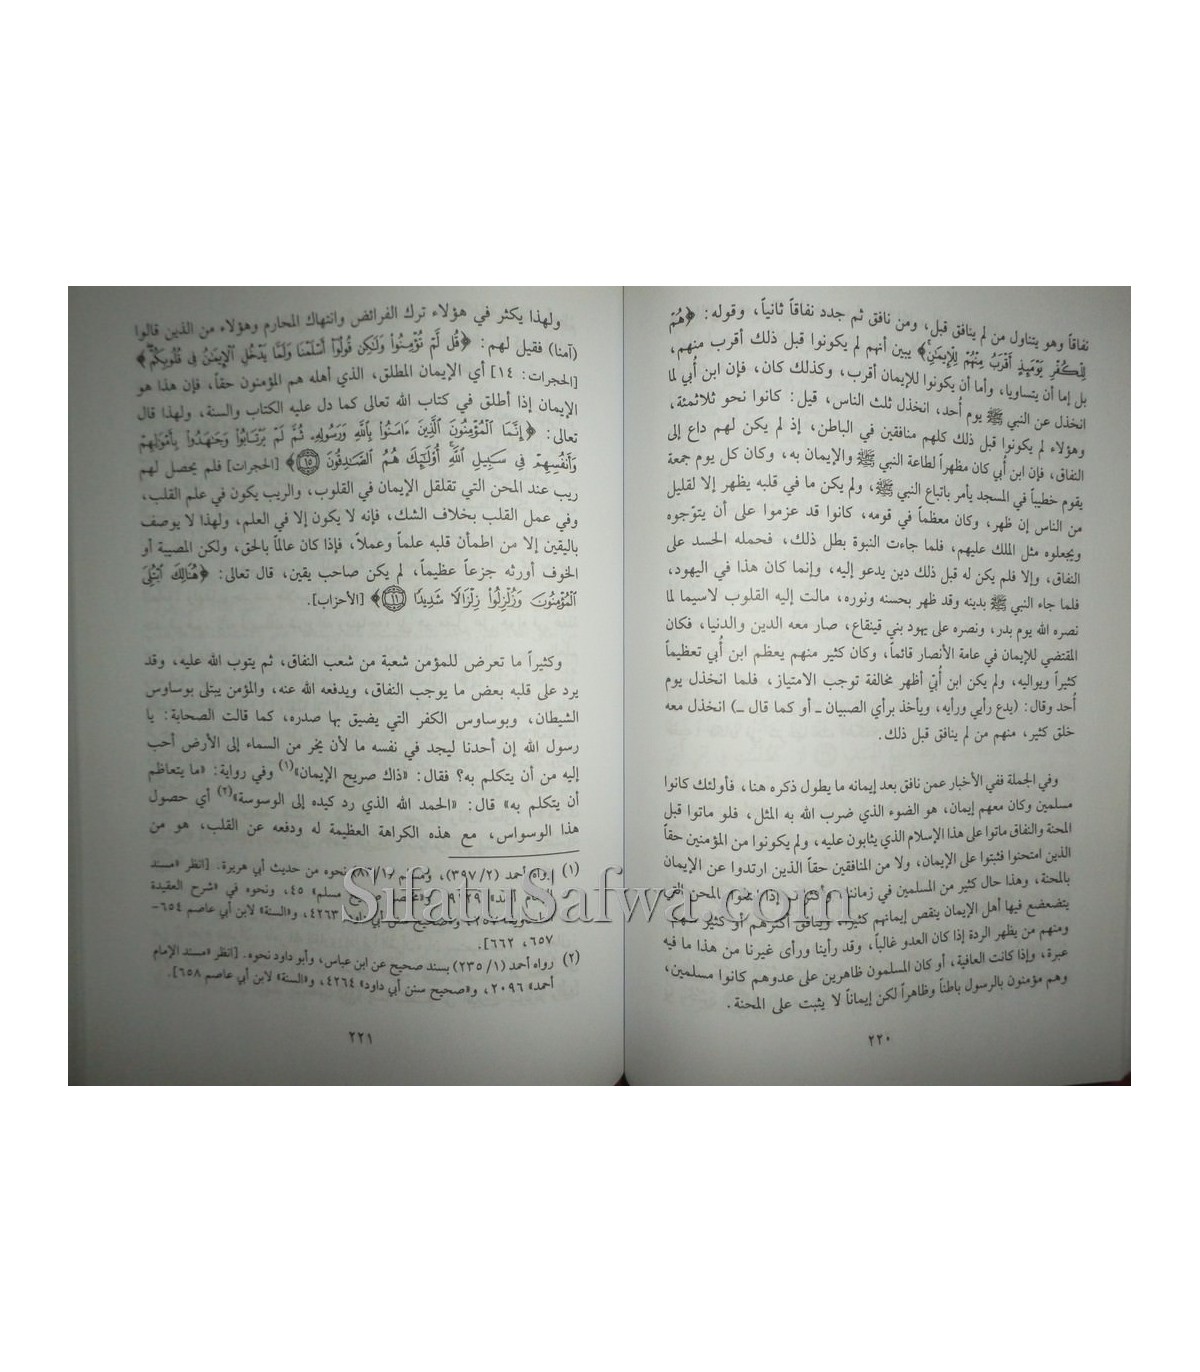 نفاقاً وهو يتناول من لم ينافق قبل، ومن نافق ثم جدد نفاقاً ثانياً، وقوله: ﴿هُمْ
لِلْكُفْرِ يَوْمَئِذٍ أَقْرَبُ مِنْهُمْ لِلْإِيمَٰنِ﴾ يبين أنهم لم يكونوا قبل ذلك أقرب منهم،
بل إما أن يتساويا، وأما أن يكونوا للإيمان أقرب، وكذلك كان، فإن ابن أُبي لما
انخذل عن النبي ﷺ يوم أُحد، انخذل ثلث الناس، قيل: كانوا نحو ثلاثمئة،
وهؤلاء لم يكونوا قبل ذلك كلهم منافقين في الباطن، إذ لم يكن لهم داع إلى
النفاق، فإن ابن أُبي كان مظهراً لطاعة النبي ﷺ والإيمان به، وكان كل يوم جمعة
يقوم خطيباً في المسجد يأمر باتباع النبي ﷺ، ولم يكن ما في قلبه يظهر إلا لقليل
من الناس إن ظهر، وكان معظماً في قومه، كانوا قد عزموا على أن يتوّجوه
ويجعلوه مثل الملك عليهم، فلما جاءت النبوة بطل ذلك، فحمله الحسد على
النفاق، وإلا فلم يكن له قبل ذلك دين يدعو إليه، وإنما كان هذا في اليهود،
فلما جاء النبي ﷺ بدينه وقد ظهر بحسنه ونوره، مالت إليه القلوب لاسيما لما
نصره الله يوم بدر، ونصره على يهود بني قينقاع، صار معه الدين والدنيا، فكان
المقتضي للإيمان في عامة الأنصار قائماً، وكان كثير منهم يعظم ابن أُبي تعظيماً
كثيراً ويواليه، ولم يكن ابن أُبيّ أظهر مخالفة توجب الامتياز، فلما انخذل يوم
أُحد وقال: (يدع رأيي ورأيه، ويأخذ برأي الصبيان ـ أو كما قال ـ) انخذل معه
خلق كثير، منهم من لم ينافق قبل ذلك.
وفي الجملة ففي الأخبار عمن نافق بعد إيمانه ما يطول ذكره هنا، فأولئك كانوا
مسلمين وكان معهم إيمان، هو الضوء الذي ضرب الله به المثل، فلو ماتوا قبل
المحنة والنفاق ماتوا على هذا الإسلام الذي يثابون عليه، ولم يكونوا من المؤمنين حقاً
الذين امتحنوا فثبتوا على الإيمان، ولا من المنافقين حقاً الذين ارتدوا عن الإيمان
بالمحنة، وهذا حال كثير من المسلمين في زماننا، وأكثرهم إذا المحن التي
يتضعضع فيها أهل الإيمان ينقص إيمانهم كثيراً، وينافق أكثرهم أو كثير منهم،
ومنهم من يظهر الردة إذا كان العدو غالباً، وقد رأينا ورأى غيرنا من هذا ما فيه
عبرة، وإذا كانت العافية، أو كان المسلمون ظاهرين على عدوهم كانوا مسلمين،
وهم مؤمنون بالرسول باطناً وظاهراً لكن إيماناً لا يثبت على المحنة.
٢٢٠
ولهذا يكثر في هؤلاء ترك الفرائض وانتهاك المحارم وهؤلاء من الذين قالوا
(آمنا) فقيل لهم: ﴿قُل لَّمْ تُؤْمِنُوا۟ وَلَٰكِن قُولُوٓا۟ أَسْلَمْنَا وَلَمَّا يَدْخُلِ ٱلْإِيمَٰنُ فِى قُلُوبِكُمْ﴾
[الحجرات: ١٤] أي الإيمان المطلق، الذي أهله هم المؤمنون حقاً، فإن هذا هو
الإيمان إذا أطلق في كتاب الله تعالى كما دل عليه الكتاب والسنة، ولهذا قال
تعالى: ﴿إِنَّمَا ٱلْمُؤْمِنُونَ ٱلَّذِينَ ءَامَنُوا۟ بِٱللَّهِ وَرَسُولِهِۦ ثُمَّ لَمْ يَرْتَابُوا۟ وَجَٰهَدُوا۟ بِأَمْوَٰلِهِمْ
وَأَنفُسِهِمْ فِى سَبِيلِ ٱللَّهِ أُو۟لَٰٓئِكَ هُمُ ٱلصَّٰدِقُونَ ١٥﴾ [الحجرات] فلم يحصل لهم
ريب عند المحن التي تقلقل الإيمان في القلوب، والريب يكون في علم القلب،
وفي عمل القلب بخلاف الشك، فإنه لا يكون إلا في العلم، ولهذا لا يوصف
باليقين إلا من اطمأن قلبه علماً وعملاً، فإذا كان عالماً بالحق، ولكن المصيبة أو
الخوف أورثه جزعاً عظيماً، لم يكن صاحب يقين، قال تعالى: ﴿هُنَالِكَ ٱبْتُلِىَ
ٱلْمُؤْمِنُونَ وَزُلْزِلُوا۟ زِلْزَالًا شَدِيدًا ١١﴾ [الأحزاب].
وكثيراً ما تعرض للمؤمن شعبة من شعب النفاق، ثم يتوب الله عليه، وقد
يرد على قلبه بعض ما يوجب النفاق، ويدفعه الله عنه، والمؤمن يبتلى بوساوس
الشيطان، وبوساوس الكفر التي يضيق بها صدره، كما قالت الصحابة: يا
رسول الله إن أحدنا ليجد في نفسه ما لأن يخر من السماء إلى الأرض أحب
إليه من أن يتكلم به؟ فقال: «ذاك صريح الإيمان»(١) وفي رواية: «ما يتعاظم
أن يتكلم به» قال: «الحمد الله الذي رد كيده إلى الوسوسة»(٢) أي حصول
هذا الوسواس، مع هذه الكراهة العظيمة له ودفعه عن القلب، هو من
(١) رواه أحمد (٢/ ٣٩٧)، ومسلم نحوه من حديث أبي هريرة. [انظر «مسند
مسلم» ٤٥، ونحوه في «شرح العقيدة
سنن أبي داود» ٤٢٦٣، و«السنة» لابن أبي عاصم ٦٥٤-
٦٥٧، ٦٦٢].
(٢) رواه أحمد (١/ ٢٣٥) بسند صحيح عن ابن عباس، وأبو داود نحوه. [انظر «مسند الإمام
أحمد» ٢٠٩٦، و«صحيح سنن أبي داود» ٤٢٦٤، و«السنة» لابن أبي عاصم ٦٥٨].
٢٢١
SifatuSafwa.com